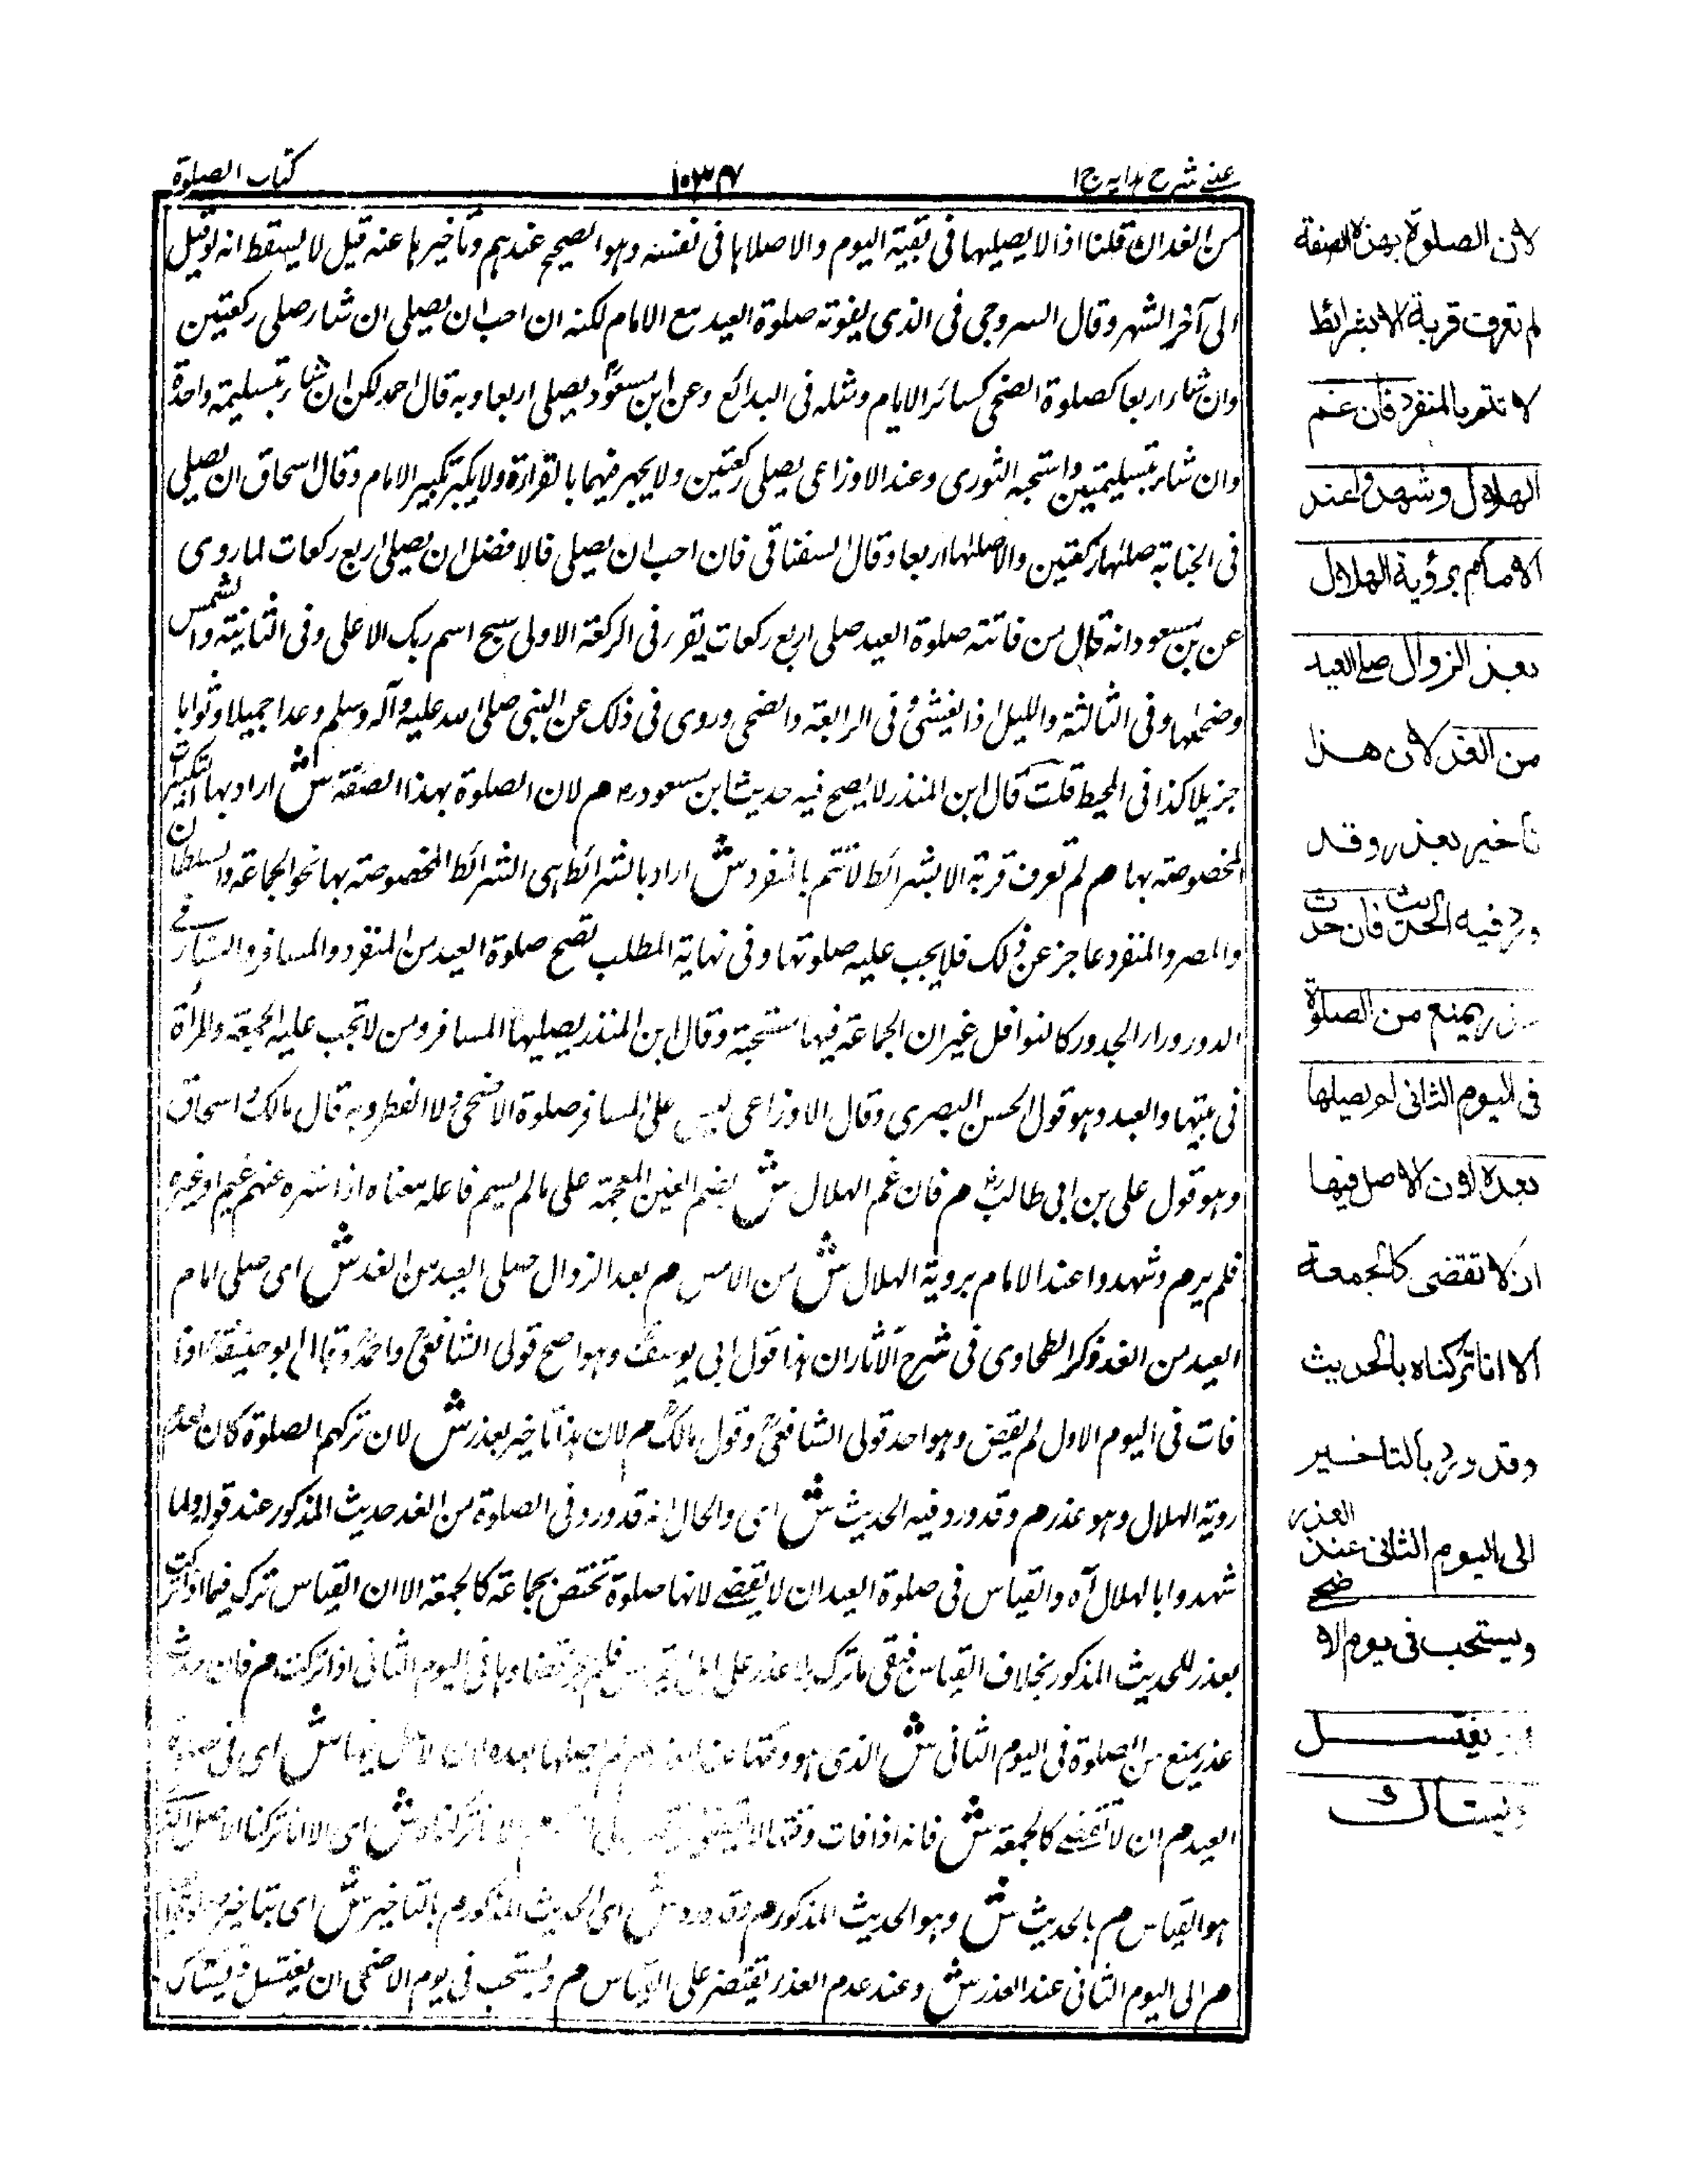 عینی شرح ہدایہ ج ۱
۱۰۳۷
کتاب الصلوة
من الغد ان قلنا اذا لا یصلیها فی بقیة الیوم والا صلاها فی نفسه وہو الصحیح عندہم وتاخیرہا عنہ قیل لا یسقط انہ لو قیل
الی آخر الشهر وقال السروجی فی الذی یفوتہ صلوة العید مع الامام لکنہ ان احب ان یصلی ان شاء صلی رکعتین
وان شاء اربعا کصلوة الضحی کسائر الایام ومثلہ فی البدائع وعن ابن مسعود یصلی اربعا وبہ قال احمد لکن ان شاء بتسلیمة واحدة
وان شاء بتسلیمتین واستحبہ الثوری وعند الاوزاعی یصلی رکعتین ولا یجہر فیہما بالقراءة ولا یکبر تکبیر الامام وقال اسحاق ان یصلی
فی الجبانة صلاہا رکعتین والا صلاہا اربعا وقال السغناقی فان احب ان یصلی فالافضل ان یصلی اربع رکعات لما روی
عن بن مسعود انہ قال من فاتتہ صلوة العید صلی اربع رکعات یقرء فی الرکعة الاولی سبح اسم ربک الاعلی وفی الثانیة والشمس
وضحاہا وفی الثالثة واللیل اذا یغشی وفی الرابعة والضحی وروی فی ذلک عن النبی صلی اللہ علیہ وآلہ وسلم وعدا جمیلا وثوابا
جزیلا کذا فی المحیط قلت قال ابن المنذر لا یصح فیہ حدیث ابن مسعود رہ م لان الصلوة بہذا الصفة ش اراد بہا التکبیرات
المخصوصة بہا م لم تعرف قربة الا بشرائط لا تتم بالمنفرد ش اراد بالشرائط ہی الشرائط المخصوصة بہا نحو الجماعة والسلطان
والمصر والمنفرد عاجز عن ذلک فلا یجب علیہ صلوتہا وفی نہایة المطلب تصح صلوة العید من المنفرد والمسافر والنساء فی
الدور وراء الجدور کالنوافل غیر ان الجماعة فیہا مستحبة وقال ابن المنذر یصلیہا المسافر ومن لا تجب علیہ الجمعة والمراة
فی بیتہا والعبد وہو قول الحسن البصری وقال الاوزاعی لیس علی المسافر صلوة الاضحی ولا الفطر وبہ قال مالک واسحاق
وہو قول علی بن ابی طالب م فان غم الہلال ش بضم الغین المعجمة علی ما لم یسم فاعلہ معناہ اذا سترہ عنہم غیم او غیرہ
فلم یر م وشہدوا عند الامام برویة الہلال ش من الامس م بعد الزوال صلی العید من الغد ش ای صلی امام
العید من الغد وذکر الطحاوی فی شرح الآثار ان ہذا قول ابی یوسف وہو اصح قولی الشافعی واحمد وقال ابو حنیفة اذا
فات فی الیوم الاول لم یقض وہو احد قولی الشافعی وقول مالک م لان ہذا تاخیر بعذر ش لان ترکہم الصلوة کان لعدم
رویة الہلال وہو عذر م وقد ورد فیہ الحدیث ش ای والحال انہ قد ورد فی الصلوة من الغد حدیث المذکور عند قولہ ولما
شہدوا بالہلال آہ والقیاس فی صلوة العید ان لا یقضے لانہا صلوة تختص بجماعة کالجمعة الا ان القیاس ترک فیما اذا ترکت
بعذر للحدیث المذکور بخلاف القیاس فبقی ما ترک بلا عذر علی اصل القیاس فلم یجز قضاوہا فی الیوم الثانی اذا ترکت م فان حدث
عذر یمنع من الصلوة فی الیوم الثانی ش الذی ہو وقتہا عند العذر م لم یصلہا بعدہ لان الاصل فیہا ش ای فی صلوة
العید م ان لا تقضے کالجمعة ش فانہ اذا فات وقتہا لا تقضی م الا انا ترکناہ ش ای الا انا ترکنا الاصل الذی
ہو القیاس م بالحدیث ش وہو الحدیث المذکور م وقد ورد ش ای الحدیث المذکور م بالتاخیر ش ای بتاخیر
م الی الیوم الثانی عند العذر ش وعند عدم العذر یقتصر علی القیاس م ویستحب فی یوم الاضحی ان یغتسل ویستاک
لان الصلوة بهذہ الصفة
لم تعرف قربة الا بشرائط
لا تتم بالمنفرد فان غم
الهلال وشهدوا عند
الامام برؤیة الهلال
بعد الزوال صلے العید
من الغد لان هذا
تاخیر بعذر وقد
ورد فیه الحدیث فان حدث
عذر یمنع من الصلوة
فی الیوم الثانی لم یصلها
بعده لان الاصل فیها
ان لا تقضی کالجمعة
الا انا ترکناه بالحدیث
وقد ورد بالتاخیر
الی الیوم الثانی عند العذر
ویستحب فی یوم الاضحی
ان یغتسل
ویستاک